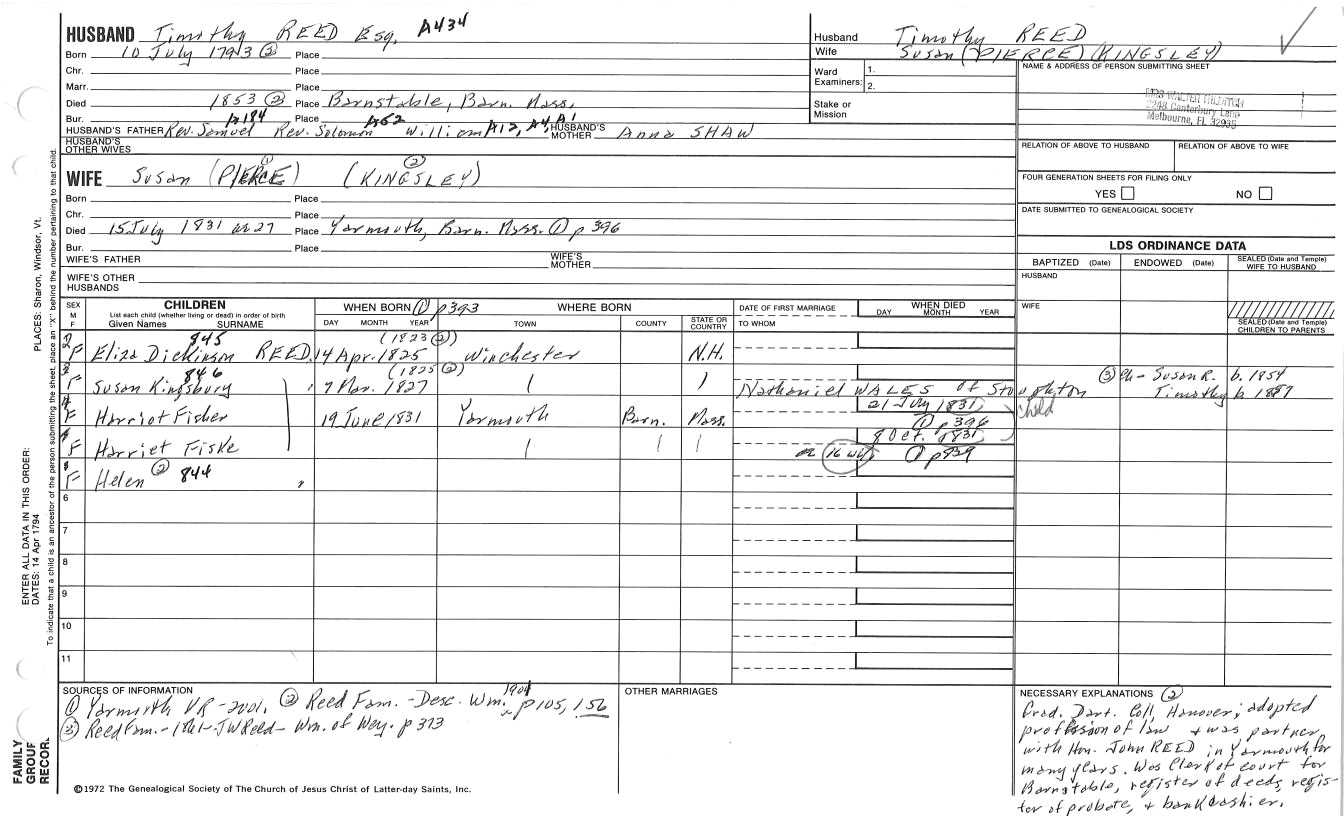 HUSBAND Timothy REED Esq. A434
Born 10 July 1793 ② Place
Chr. Place
Marr. Place
Died 1853 ② Place Barnstable, Barn. Mass.
Bur. Place
A184 A62
HUSBAND'S FATHER Rev. Samuel Rev. Solomon William A12, A4, A1 HUSBAND'S MOTHER Anna SHAW
HUSBAND'S OTHER WIVES
① ②
WIFE Susan (PIERCE) (KINGSLEY)
Born Place
Chr. Place
Died 15 July 1831 ae 27 Place Yarmouth, Barn. Mass. ① p 396
Bur. Place
WIFE'S FATHER WIFE'S MOTHER
WIFE'S OTHER HUSBANDS
Husband Timothy REED
Wife Susan (PIERCE) (KINGSLEY)
Ward Examiners: 1.
2.
Stake or Mission
NAME & ADDRESS OF PERSON SUBMITTING SHEET
MRS WALTER
2248 Canterbury Lane
Melbourne, FL 32935
RELATION OF ABOVE TO HUSBAND RELATION OF ABOVE TO WIFE
FOUR GENERATION SHEETS FOR FILING ONLY
YES NO
DATE SUBMITTED TO GENEALOGICAL SOCIETY
LDS ORDINANCE DATA
BAPTIZED (Date) ENDOWED (Date) SEALED (Date and Temple) WIFE TO HUSBAND
HUSBAND
WIFE
SEALED (Date and Temple) CHILDREN TO PARENTS
SEX M F
CHILDREN
List each child (whether living or dead) in order of birth
Given Names SURNAME
WHEN BORN ① p 393
DAY MONTH YEAR
WHERE BORN
TOWN COUNTY STATE OR COUNTRY
DATE OF FIRST MARRIAGE
TO WHOM
WHEN DIED
DAY MONTH YEAR
845 (1823 ②)
F Eliza Dickinson REED 14 Apr. 1825 Winchester N.H.
846 (1825 ②)
F Susan Kingsbury 7 Mar. 1827 Nathaniel WALES of Stoughton
③ Ch - Susan R. b. 1854
Timothy b. 1857
21 July 1831
F Harriot Fisher 19 June 1831 Yarmouth Barn. Mass. ① p 396 child
8 Oct. 1831
F Harriet Fiske ae 16 wks ① p 939
F Helen ② 844
6
7
8
9
10
11
SOURCES OF INFORMATION
① Yarmouth VR - 2001, ② Reed Fam. - Desc. Wm. 1901 p 105, 156
③ Reed Fam. - 1861 - JW Reed - Wm. of Wey. p 373
OTHER MARRIAGES
NECESSARY EXPLANATIONS ②
Grad. Dart. Coll, Hanover; adopted
proffession of law & was partner
with Hon. John REED in Yarmouth for
many years. Was Clerk of court for
Barnstable, register of deeds, regis-
ter of probate, & bank cashier.
©1972 The Genealogical Society of The Church of Jesus Christ of Latter-day Saints, Inc.
FAMILY GROUP RECOR.
ENTER ALL DATA IN THIS ORDER:
DATES: 14 Apr 1794
PLACES: Sharon, Windsor, Vt.
To indicate that a child is an ancestor of the person submitting the sheet, place an "X" behind the number pertaining to that child.